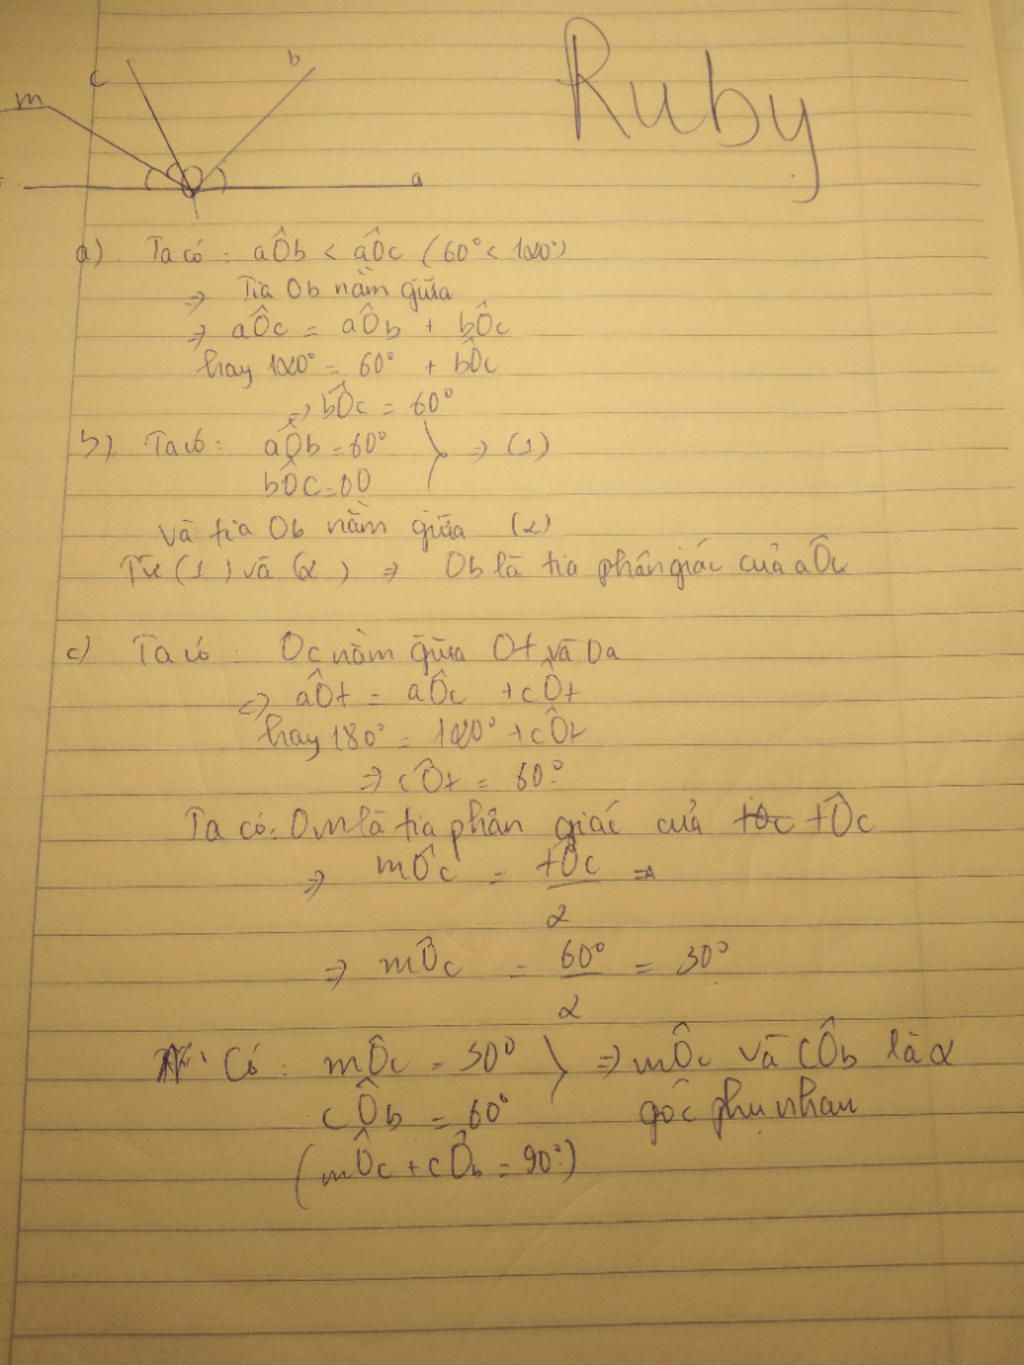 Ruby
c b
m
a
a) Ta có : aÔb < aÔc (60° < 120°)
=> Tia Ob nằm giữa
=> aÔc = aÔb + bÔc
hay 120° = 60° + bÔc
=> bÔc = 60°
b) Ta có : aÔb = 60° } => (1)
bÔc = 60
Và tia Ob nằm giữa (2)
Từ (1) và (2) => Ob là tia phân giác của aÔc
c) Ta có : Oc nằm giữa Ot và Oa
=> aÔt = aÔc + cÔt
hay 180° = 120° + cÔt
=> cÔt = 60°
Ta có: Om là tia phân giác của tÔc tÔc
=> mÔc = tÔc =>
2
=> mÔc = 60° = 30°
2
Có : mÔc = 30° } => mÔc và cÔb là 2
cÔb = 60° góc phụ nhau
(mÔc + cÔb = 90°)